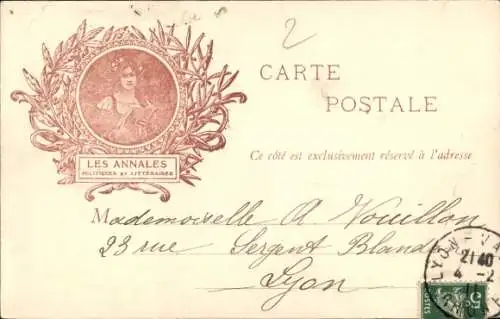 2
CARTE
POSTALE
LES ANNALES
POLITIQUES ET LITTÉRAIRES
Ce côté est exclusivement réservé à l'adresse
Mademoiselle A Vouillon
23 rue Sergent Blandan
Lyon
LYON
21 40
4 -2
11
5c
POSTES